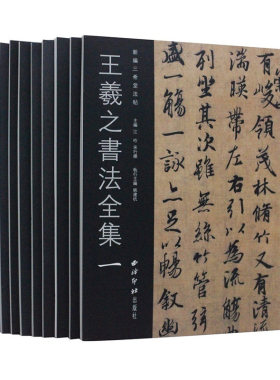 新編三希堂法帖
王羲之書法全集
一
西泠印社出版社
有峻領茂林脩竹又有清流
湍暎帶左右引以為流觴
列坐其次雖無絲竹管弦
盛一觴一詠亦足以暢敘幽